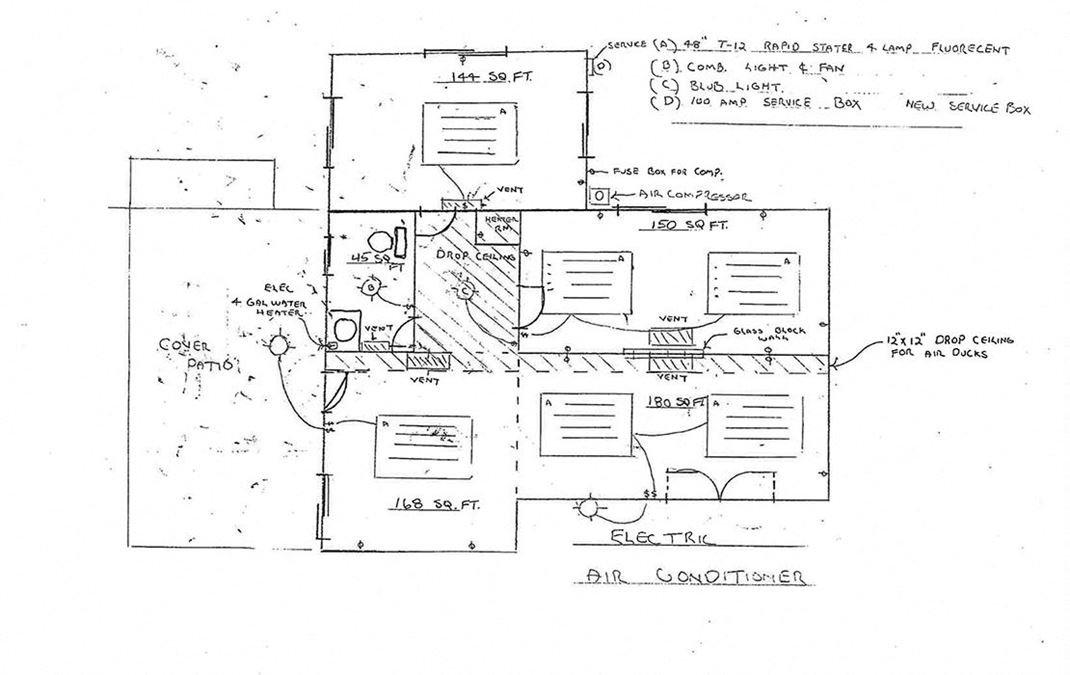 SERVICE (A) 48" T-12 RAPID STATER 4 LAMP FLUORECENT
(B) COMB. LIGHT & FAN
(C) BLUB LIGHT.
(D) 100 AMP SERVICE BOX NEW SERVICE BOX
D
144 SQ.FT.
A
FUSE BOX FOR COMP.
VENT
AIR COMPRESSOR
HEATER
RM
150 SQ FT.
45 SQ.
FT
DROP CEILING
A
A
B
C
ELEC
4 GAL WATER
HEATER
VENT
VENT
GLASS BLOCK
WALL
COVER
PATIO
12"x12" DROP CEILING
FOR AIR DUCKS
VENT
VENT
A
180 SQ FT
A
A
$$
168 SQ.FT.
$$
ELECTRIC
AIR CONDITIONER